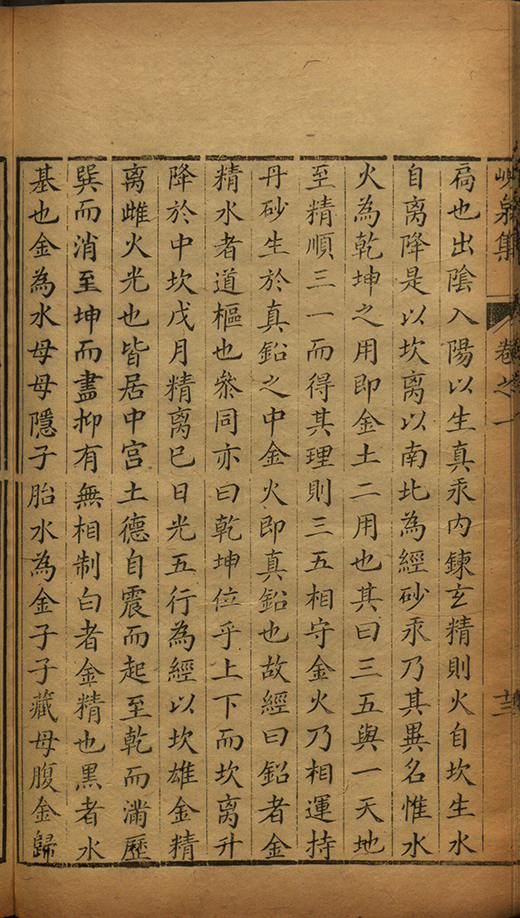 峴泉集 卷之一 十二
扃也出陰入陽以生真汞内鍊玄精則火自坎生水
自离降是以坎离以南北為經砂汞乃其異名惟水
火為乾坤之用即金土二用也其曰三五與一天地
至精順三一而得其理則三五相守金火乃相運持
丹砂生於真鉛之中金火即真鉛也故經曰鉛者金
精水者道樞也參同亦曰乾坤位乎上下而坎离升
降於中坎戊月精离巳日光五行為經以坎雄金精
离雌火光也皆居中宫土德自震而起至乾而滿歷
巽而消至坤而盡抑有無相制白者金精也黒者水
基也金為水母母隱子胎水為金子子藏母腹金歸